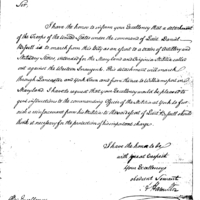 Sir,
I have the honor to inform your Excellency that a detachment
of the Troops of the United States under the command of Lieut Daniel
is to march from this City as an escort to a train of Artillery and
Military Stores intended for the Maryland and Virginia Militia called
out against the Western Insurgents. This detachment will march
through Lancaster and York Town and from thence to Williamsport in
Maryland. I have to request that your Excellency would be pleased to
give directions to the commanding Officer of the Militia at York to fur-
nish a reinforcement from his Militia to the escort of Lieut
both as necessary for the protection of his important charge
I have the honor to be
with great respect
Your Excellency's
obedient Servant
A Hamilton
His Excellency